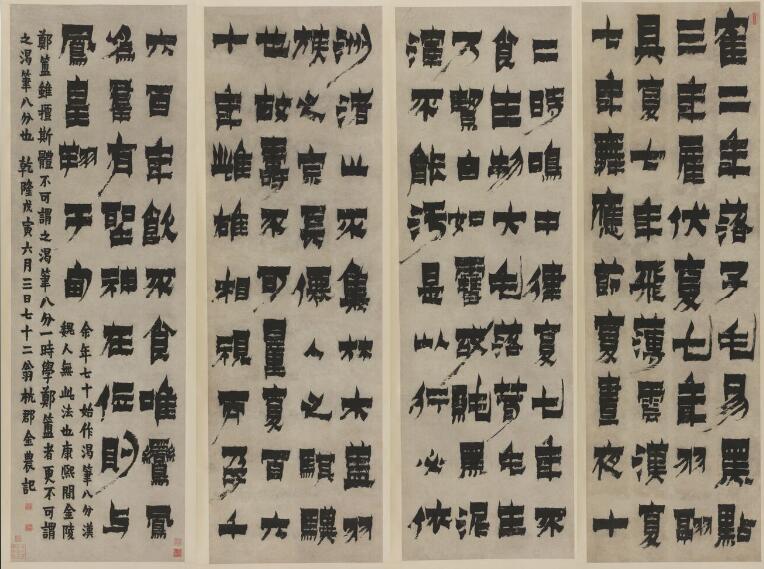 隺二年落子毛易黑點
三年産伏夏七年羽翮
具夏七年飛薄雲漢夏
七年舞應節夏晝夜十
二時鳴中律夏七年不
食生物大毛落茸毛生
乃絜白如雪或純黑泥
渾不能污是以行必依
洲渚止不集林木蓋羽
族之宗長僊人之騏驥
也故壽不可量夏百六
十年雌雄相視而孕千
六百年飲不食唯鸞鳳
為羣有聖神在位則與
鳳皇翔于甸
余年七十始作渴筆八分漢
魏人無此法也康熙間金陵
鄭簠雖擅斯體不可謂之渴筆八分一時學鄭簠者更不可謂
之渴筆八分也 乾隆戊寅六月三日七十二翁杭郡金農記